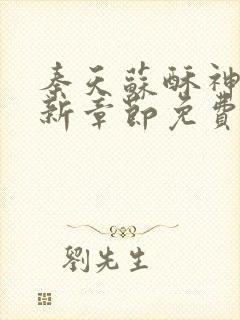 秦天蘇酥神
新章節免費
劉先生